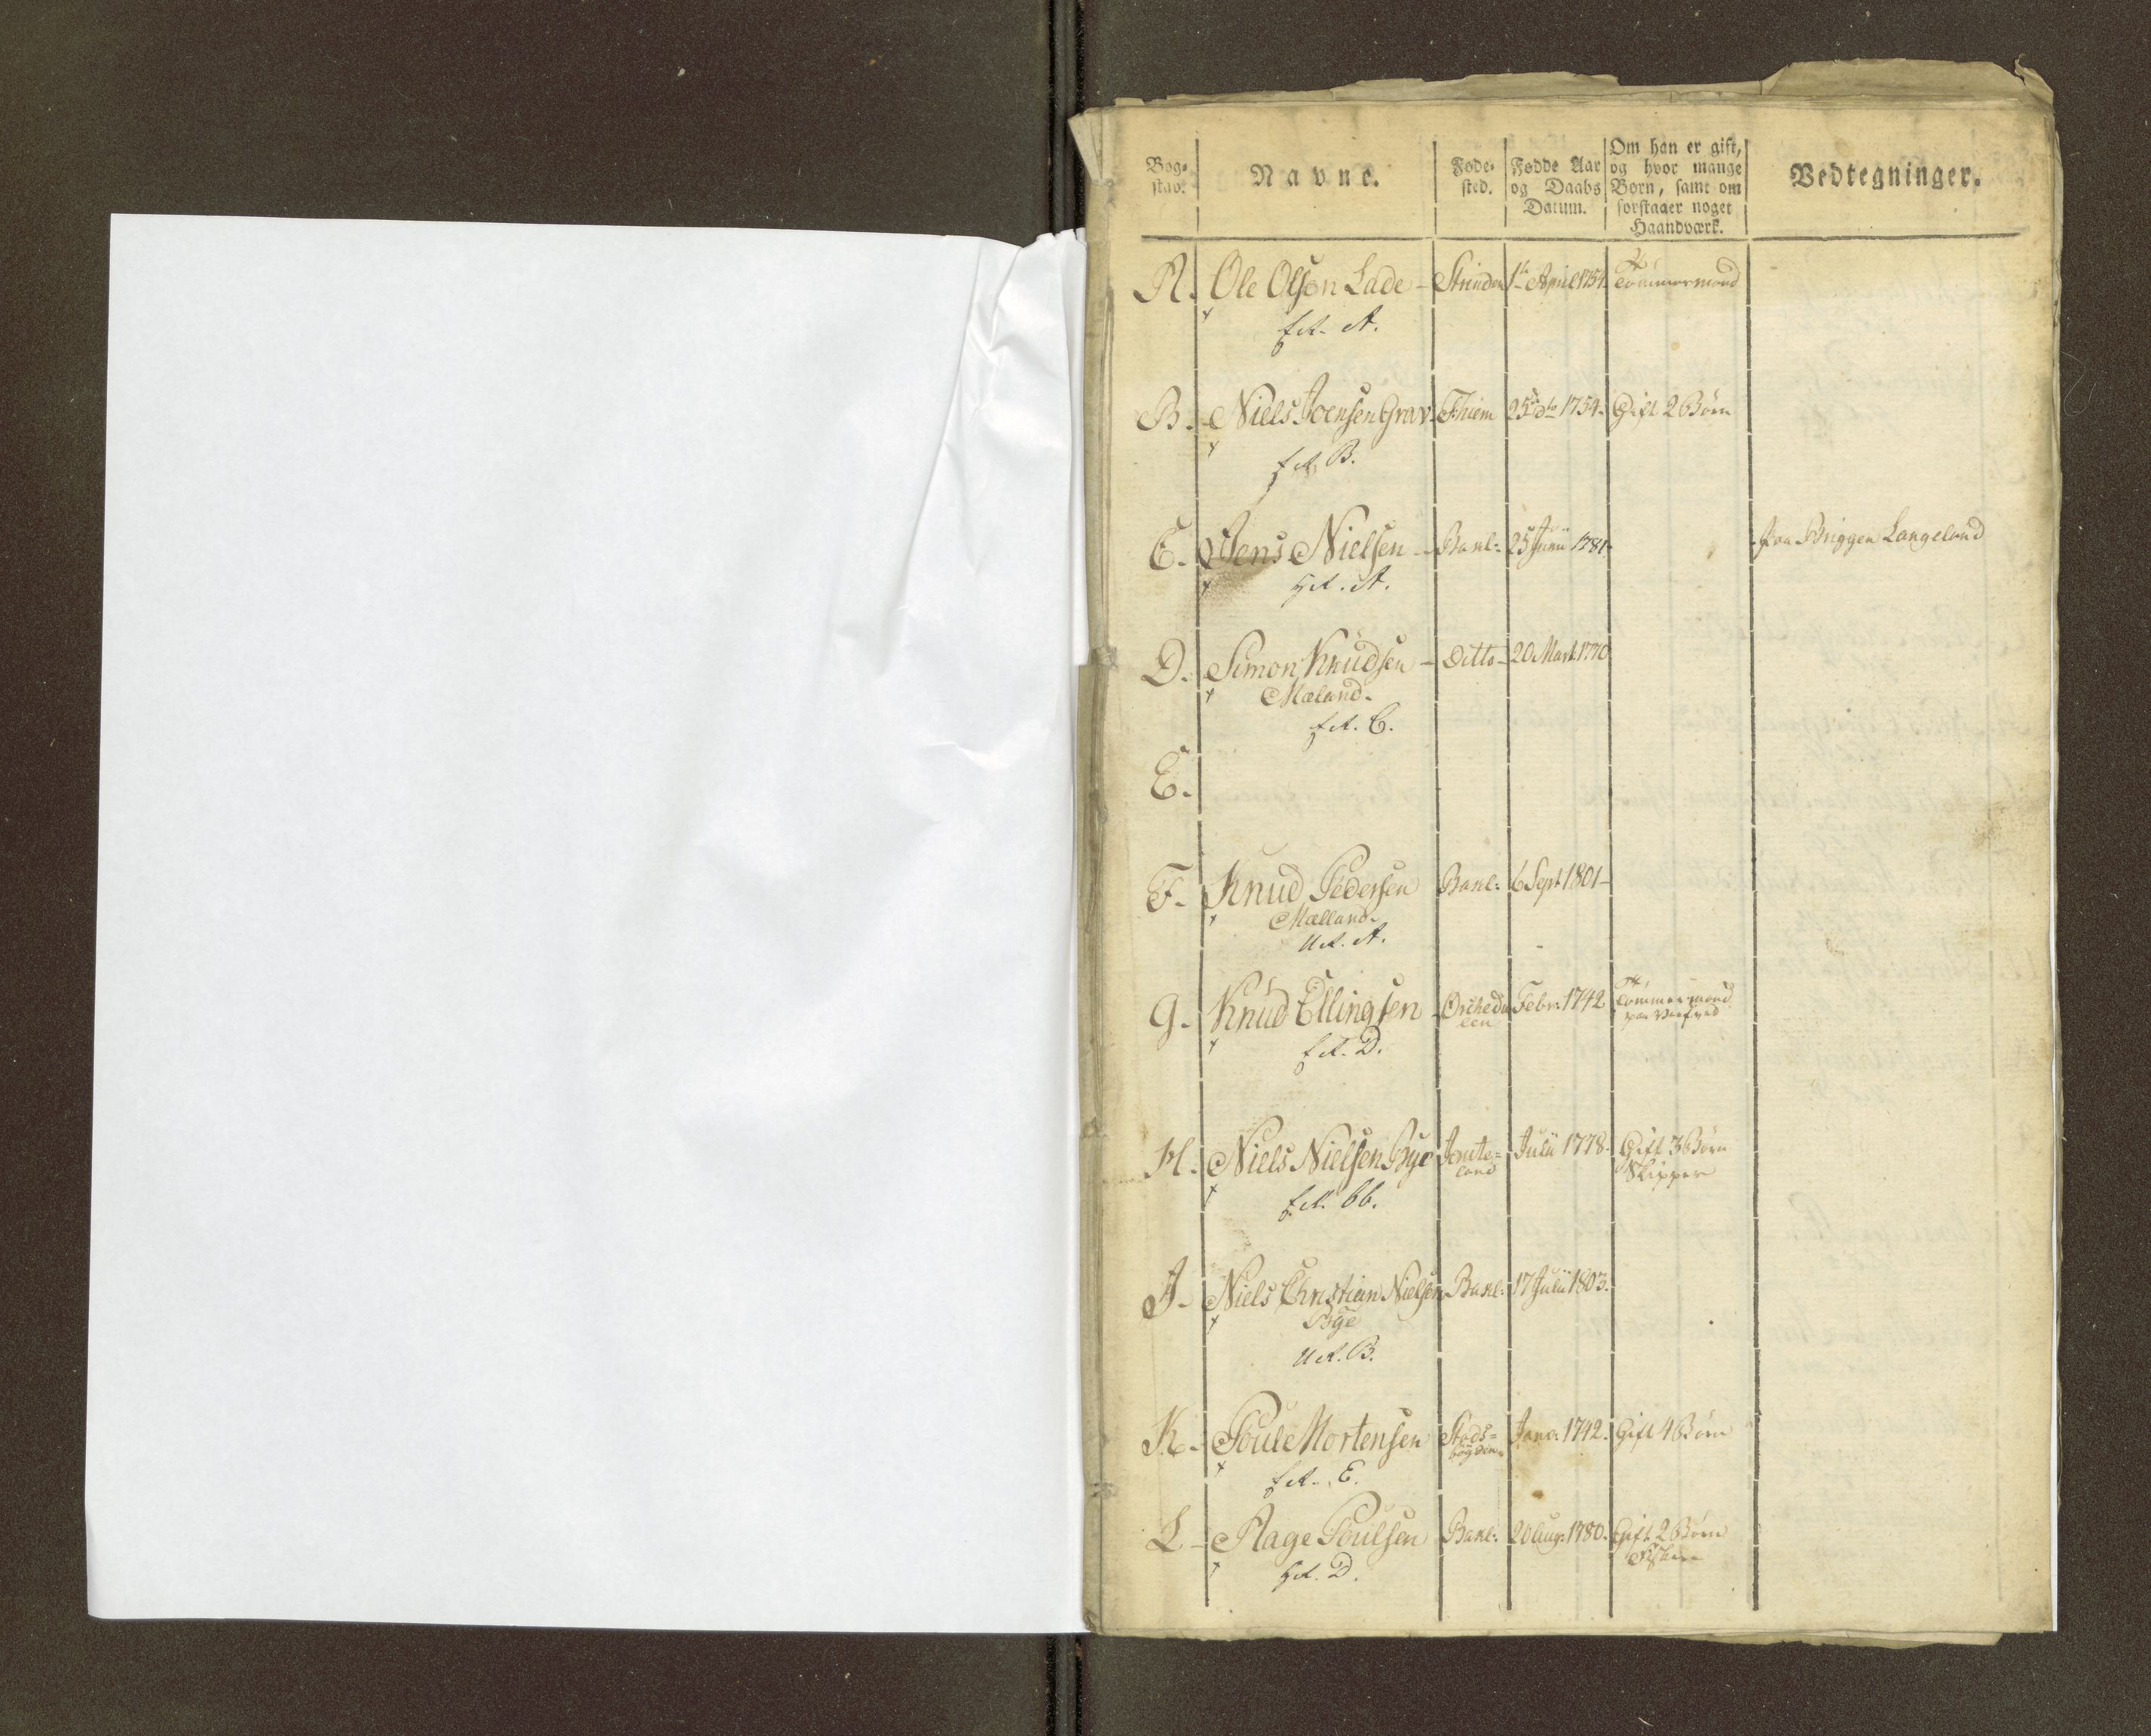 Bog-
stav.
Navne.
Føde-
sted.
Fødde Aar
og Daabs
Datum.
Om han er gift,
og hvor mange
Børn, samt om
forstaaer noget
Haandværk.
Vedtegninger.
A. Ole Olsen Lade - Strinden 1te April 1754. Tømmermand
f.R. A.
B. Niels Joensen Grav Thiem 25de dto 1754. Gift 2 Børn
f.R. B.
C. Jens Nielsen - Bakl: 25 Junii 1781. paa Briggen Langeland
H.R. A.
D. Simon Knudsen - Ditto - 20 Mart. 1770
Mæland.
f.R. C.
E.
F. Knud Pedersen Bakl: 6 Sept 1801 -
Mælland.
U.R. A.
G. Knud Ellingsen - Febr: 1742 Tømmermand
f.R. D.
H. Niels Nielsen Bye Jemte- Julii 1778. Gift 3 Børn
land Skipper
f.R. bb.
J. Niels Christian Nielsen Bakl: 17 Julii 1803.
Bye
U.R. B.
K. Poul Mortensen Stads- Janv: 1742. Gift 4 Børn
bøyden.
f.R. E.
L - Aage Poulsen Bakl: 20 Aug: 1780. Gift 2 Børn
H.R. D.